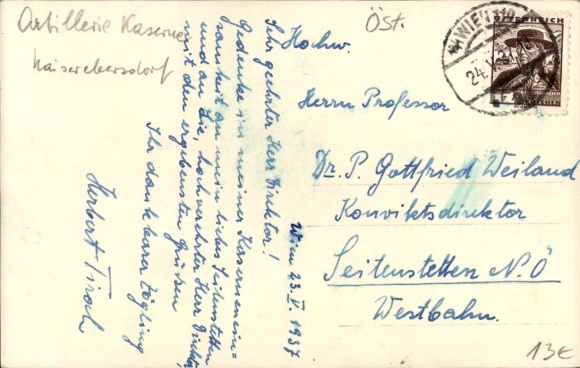 Artillerie Kaserne
Kaiserebersdorf
Öst.
WIEN 110
24. V. 37
ÖSTERREICH
GROSCHEN
Wien 23. V. 1937
Sehr geehrter Herr Direktor!
Gedenke in meiner Kaserneneins=
samkeit an mein liebes Seitenstetten
und an Sie, hochverehrter Herr Direktor,
mit den ergebensten Grüssen
Ihr dankbarer Zögling
Herbert
Hochw.
Herrn Professor
Dr. P. Gottfried Weiland
Konviktsdirektor
Seitenstetten N.Ö
Westbahn.
13€